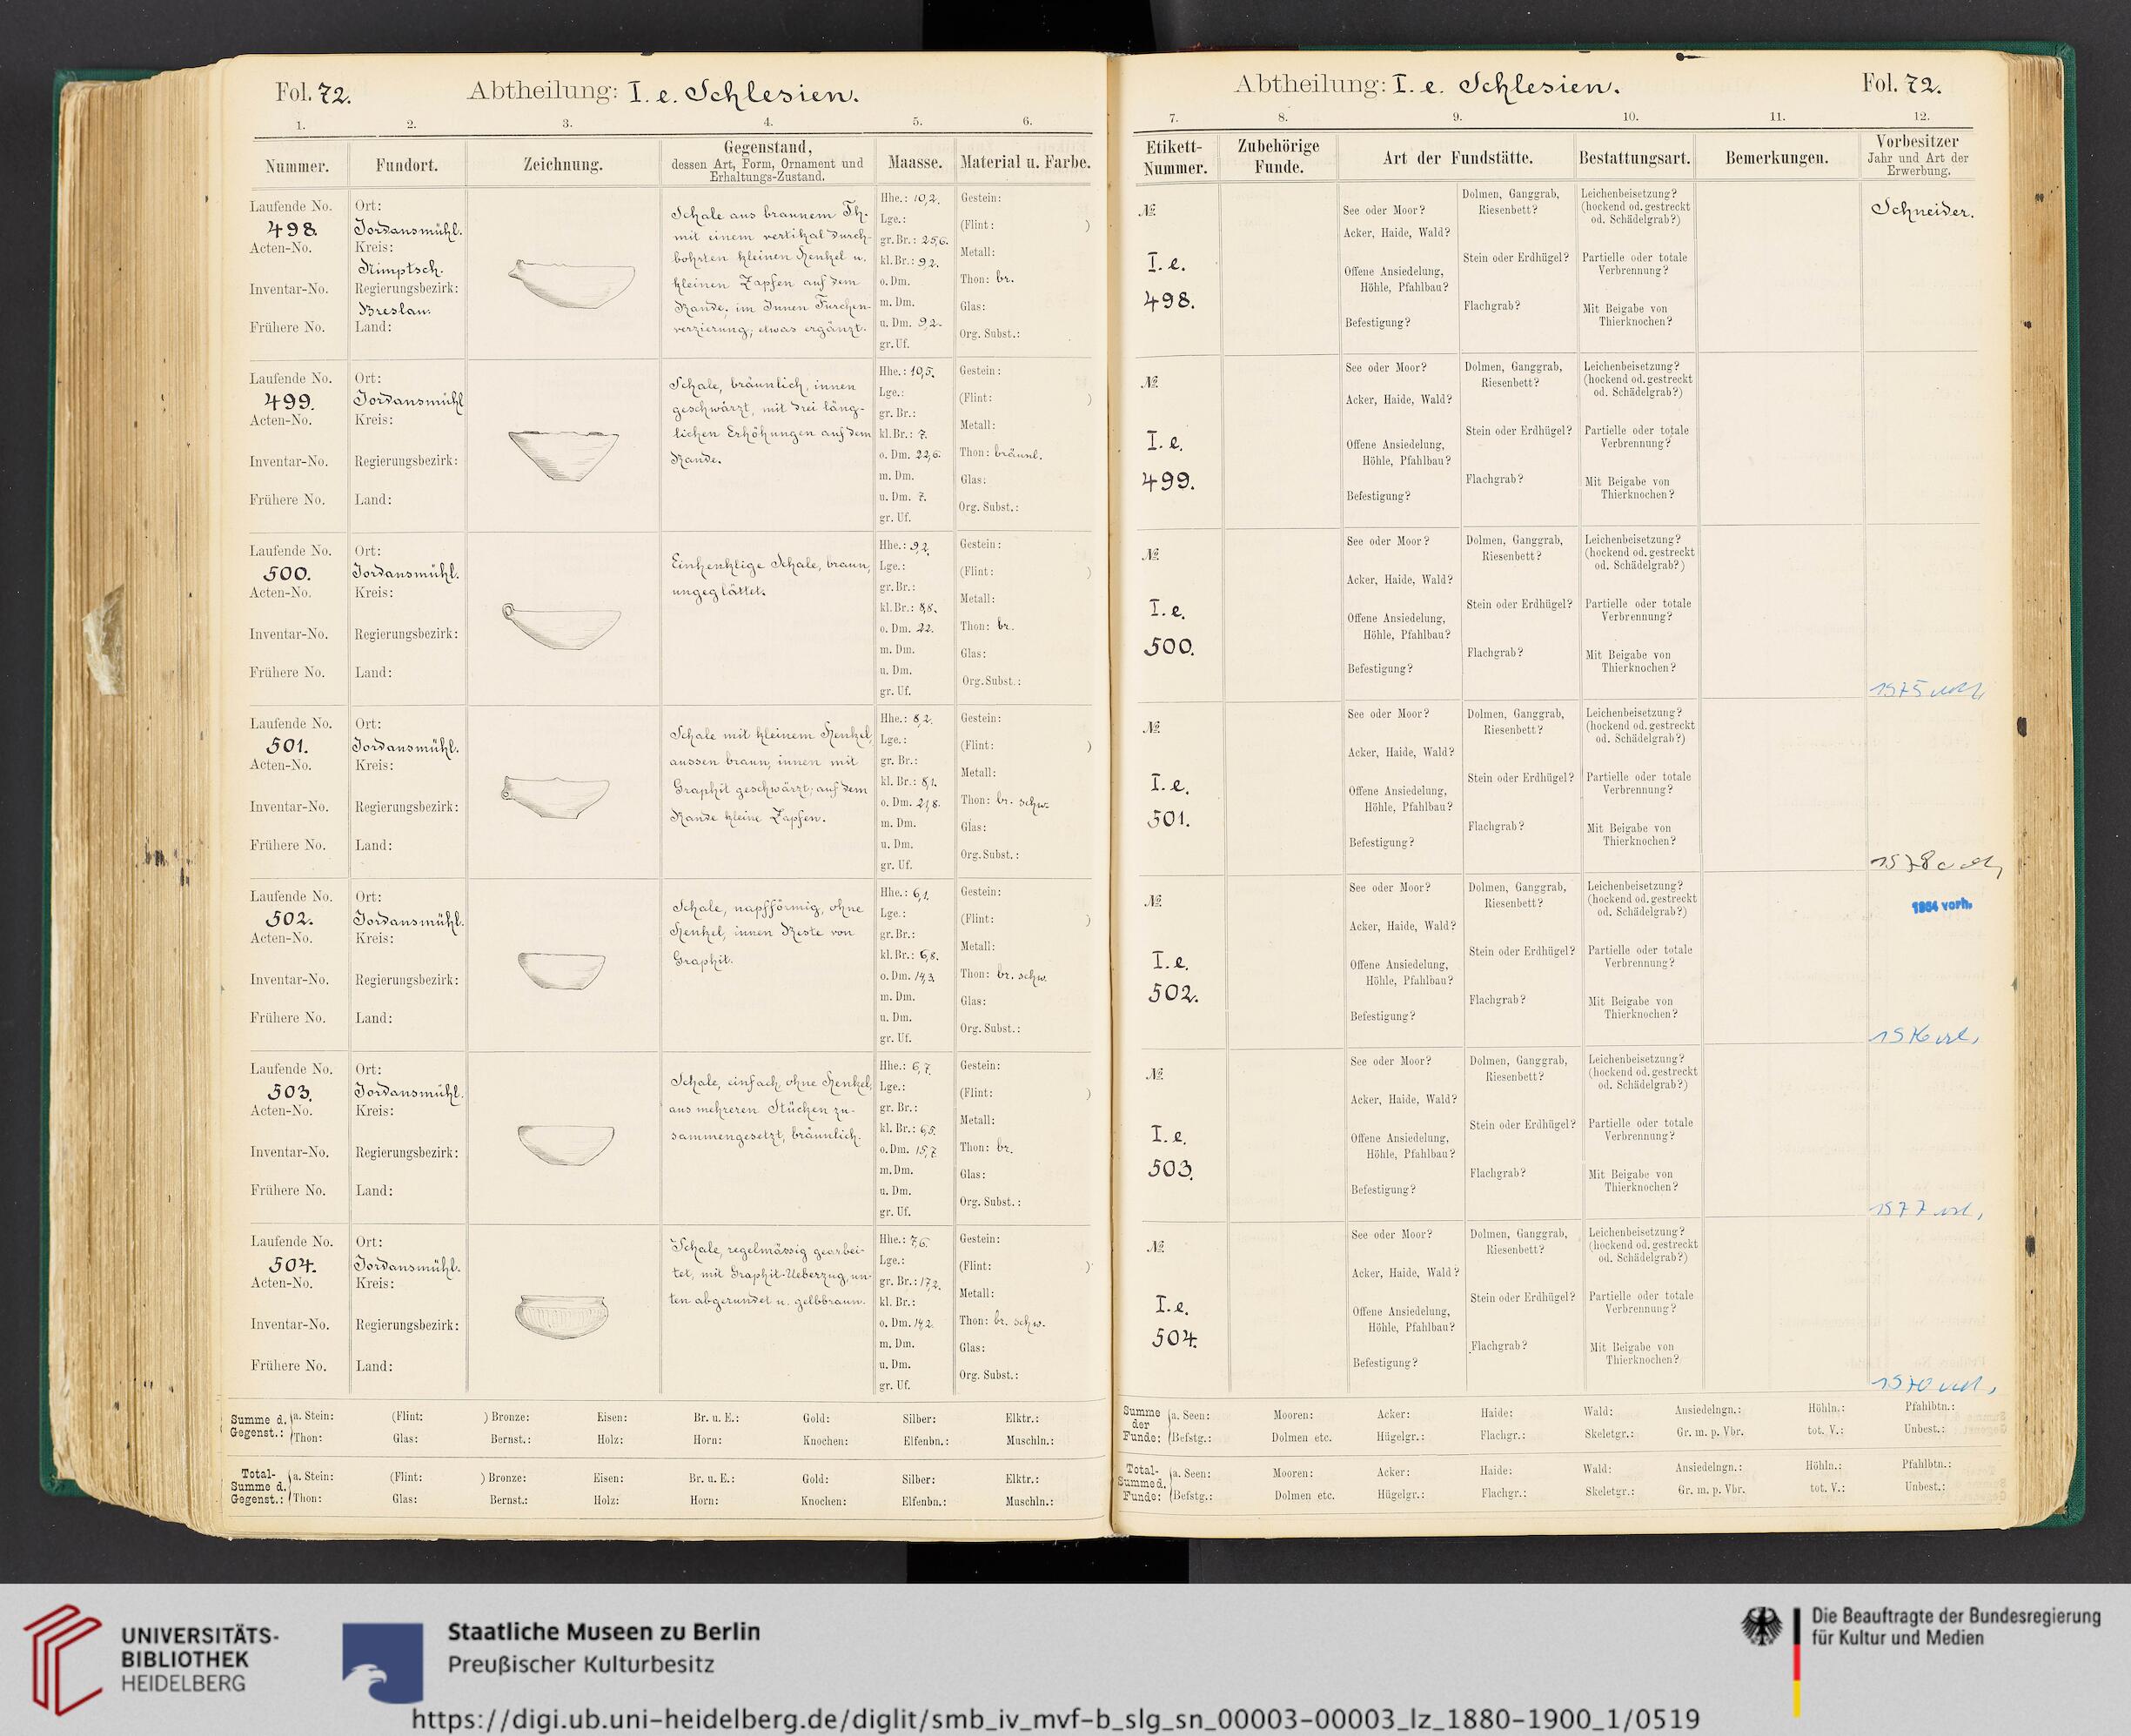 Fol. 72.
Abtheilung: I. e. Schlesien.
1. 2. 3. 4. 5. 6.
Nummer.
Fundort.
Zeichnung.
Gegenstand,
dessen Art, Form, Ornament und
Erhaltungs-Zustand.
Maasse.
Material u. Farbe.
Laufende No.
498.
Acten-No.
Inventar-No.
Frühere No.
Ort:
Jordansmühl.
Kreis:
Nimptsch.
Regierungsbezirk:
Breslau.
Land:
Schale aus braunem Th.
mit einem vertikal durch-
bohrten kleinen Henkel u.
kleinen Zapfen auf dem
Rande, im Innen Furchen-
verzierung; etwas ergänzt.
Hhe.: 10,2.
Lge.:
gr. Br.: 25,6.
kl. Br.: 9,2.
o. Dm.
m. Dm.
u. Dm. 9,2.
gr. Uf.
Gestein:
(Flint: )
Metall:
Thon: br.
Glas:
Org. Subst.:
Laufende No.
499.
Acten-No.
Inventar-No.
Frühere No.
Ort:
Jordansmühl
Kreis:
Regierungsbezirk:
Land:
Schale, bräunlich, innen
geschwärzt, mit drei läng-
lichen Erhöhungen auf dem
Rande.
Hhe.: 10,5.
Lge.:
gr. Br.:
kl. Br.: 7.
o. Dm. 22,6.
m. Dm.
u. Dm. 7.
gr. Uf.
Gestein:
(Flint: )
Metall:
Thon: bräunl.
Glas:
Org. Subst.:
Laufende No.
500.
Acten-No.
Inventar-No.
Frühere No.
Ort:
Jordansmühl.
Kreis:
Regierungsbezirk:
Land:
Einhenklige Schale, braun,
ungeglättet.
Hhe.: 9,2.
Lge.:
gr. Br.:
kl. Br.: 8,8.
o. Dm. 22.
m. Dm.
u. Dm.
gr. Uf.
Gestein:
(Flint: )
Metall:
Thon: br.
Glas:
Org. Subst.:
Laufende No.
501.
Acten-No.
Inventar-No.
Frühere No.
Ort:
Jordansmühl.
Kreis:
Regierungsbezirk:
Land:
Schale mit kleinem Henkel,
aussen braun, innen mit
Graphit geschwärzt; auf dem
Rande kleine Zapfen.
Hhe.: 8,2.
Lge.:
gr. Br.:
kl. Br.: 8,1.
o. Dm. 21,8.
m. Dm.
u. Dm.
gr. Uf.
Gestein:
(Flint: )
Metall:
Thon: br. schw.
Glas:
Org. Subst.:
Laufende No.
502.
Acten-No.
Inventar-No.
Frühere No.
Ort:
Jordansmühl.
Kreis:
Regierungsbezirk:
Land:
Schale, napfförmig, ohne
Henkel, innen Reste von
Graphit.
Hhe.: 6,1.
Lge.:
gr. Br.:
kl. Br.: 6,8.
o. Dm. 14,3.
m. Dm.
u. Dm.
gr. Uf.
Gestein:
(Flint: )
Metall:
Thon: br. schw.
Glas:
Org. Subst.:
Laufende No.
503.
Acten-No.
Inventar-No.
Frühere No.
Ort:
Jordansmühl.
Kreis:
Regierungsbezirk:
Land:
Schale, einfach, ohne Henkel,
aus mehreren Stücken zu-
sammengesetzt, bräunlich.
Hhe.: 6,7.
Lge.:
gr. Br.:
kl. Br.: 6,5.
o. Dm. 15,7.
m. Dm.
u. Dm.
gr. Uf.
Gestein:
(Flint: )
Metall:
Thon: br.
Glas:
Org. Subst.:
Laufende No.
504.
Acten-No.
Inventar-No.
Frühere No.
Ort:
Jordansmühl.
Kreis:
Regierungsbezirk:
Land:
Schale, regelmässig gearbei-
tet, mit Graphit-Ueberzug, un-
ten abgerundet u. gelbbraun.
Hhe.: 7,6.
Lge.:
gr. Br.: 17,2.
kl. Br.:
o. Dm. 14,2.
m. Dm.
u. Dm.
gr. Uf.
Gestein:
(Flint: )
Metall:
Thon: br. schw.
Glas:
Org. Subst.:
Summe d. Gegenst.:
a. Stein: (Flint: ) Bronze: Eisen: Br. u. E.: Gold: Silber: Elktr.:
Thon: Glas: Bernst.: Holz: Horn: Knochen: Elfenbn.: Muschln.:
Total-Summe d. Gegenst.:
a. Stein: (Flint: ) Bronze: Eisen: Br. u. E.: Gold: Silber: Elktr.:
Thon: Glas: Bernst.: Holz: Horn: Knochen: Elfenbn.: Muschln.:
Abtheilung: I. e. Schlesien.
Fol. 72.
7. 8. 9. 10. 11. 12.
Etikett-
Nummer.
Zubehörige
Funde.
Art der Fundstätte.
Bestattungsart.
Bemerkungen.
Vorbesitzer
Jahr und Art der
Erwerbung.
№
I. e.
498.
See oder Moor?
Acker, Haide, Wald?
Offene Ansiedelung,
Höhle, Pfahlbau?
Befestigung?
Dolmen, Ganggrab,
Riesenbett?
Stein oder Erdhügel?
Flachgrab?
Leichenbeisetzung?
(hockend od. gestreckt
od. Schädelgrab?)
Partielle oder totale
Verbrennung?
Mit Beigabe von
Thierknochen?
Schneider.
№
I. e.
499.
See oder Moor?
Acker, Haide, Wald?
Offene Ansiedelung,
Höhle, Pfahlbau?
Befestigung?
Dolmen, Ganggrab,
Riesenbett?
Stein oder Erdhügel?
Flachgrab?
Leichenbeisetzung?
(hockend od. gestreckt
od. Schädelgrab?)
Partielle oder totale
Verbrennung?
Mit Beigabe von
Thierknochen?
№
I. e.
500.
See oder Moor?
Acker, Haide, Wald?
Offene Ansiedelung,
Höhle, Pfahlbau?
Befestigung?
Dolmen, Ganggrab,
Riesenbett?
Stein oder Erdhügel?
Flachgrab?
Leichenbeisetzung?
(hockend od. gestreckt
od. Schädelgrab?)
Partielle oder totale
Verbrennung?
Mit Beigabe von
Thierknochen?
№
I. e.
501.
See oder Moor?
Acker, Haide, Wald?
Offene Ansiedelung,
Höhle, Pfahlbau?
Befestigung?
Dolmen, Ganggrab,
Riesenbett?
Stein oder Erdhügel?
Flachgrab?
Leichenbeisetzung?
(hockend od. gestreckt
od. Schädelgrab?)
Partielle oder totale
Verbrennung?
Mit Beigabe von
Thierknochen?
№
I. e.
502.
See oder Moor?
Acker, Haide, Wald?
Offene Ansiedelung,
Höhle, Pfahlbau?
Befestigung?
Dolmen, Ganggrab,
Riesenbett?
Stein oder Erdhügel?
Flachgrab?
Leichenbeisetzung?
(hockend od. gestreckt
od. Schädelgrab?)
Partielle oder totale
Verbrennung?
Mit Beigabe von
Thierknochen?
1964 vorh.
№
I. e.
503.
See oder Moor?
Acker, Haide, Wald?
Offene Ansiedelung,
Höhle, Pfahlbau?
Befestigung?
Dolmen, Ganggrab,
Riesenbett?
Stein oder Erdhügel?
Flachgrab?
Leichenbeisetzung?
(hockend od. gestreckt
od. Schädelgrab?)
Partielle oder totale
Verbrennung?
Mit Beigabe von
Thierknochen?
№
I. e.
504.
See oder Moor?
Acker, Haide, Wald?
Offene Ansiedelung,
Höhle, Pfahlbau?
Befestigung?
Dolmen, Ganggrab,
Riesenbett?
Stein oder Erdhügel?
Flachgrab?
Leichenbeisetzung?
(hockend od. gestreckt
od. Schädelgrab?)
Partielle oder totale
Verbrennung?
Mit Beigabe von
Thierknochen?
Summe der Funde:
a. Seen: Mooren: Acker: Haide: Wald: Ansiedelngn.: Höhln.: Pfahlbtn.:
Befstg.: Dolmen etc. Hügelgr.: Flachgr.: Skeletgr.: Gr. m. p. Vbr. tot. V.: Unbest.:
Total-Summe d. Funde:
a. Seen: Mooren: Acker: Haide: Wald: Ansiedelngn.: Höhln.: Pfahlbtn.:
Befstg.: Dolmen etc. Hügelgr.: Flachgr.: Skeletgr.: Gr. m. p. Vbr. tot. V.: Unbest.:
UNIVERSITÄTS-
BIBLIOTHEK
HEIDELBERG
Staatliche Museen zu Berlin
Preußischer Kulturbesitz
Die Beauftragte der Bundesregierung
für Kultur und Medien
https://digi.ub.uni-heidelberg.de/diglit/smb_iv_mvf-b_slg_sn_00003-00003_lz_1880-1900_1/0519